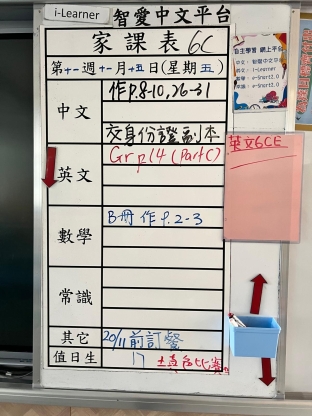 i-Learner 智愛中文平台
家課表 6C
第十一週十一月十五日(星期五)
中文
作P.8-10,26-31
交身份證副本
英文
Gr p14 (Part C)
數學
B冊 作 P.2-3
常識
其它
20/11前訂餐
值日生
17
英文6CE
自主學習 網上平台
中文：智愛中文平台
英文：i-Learner